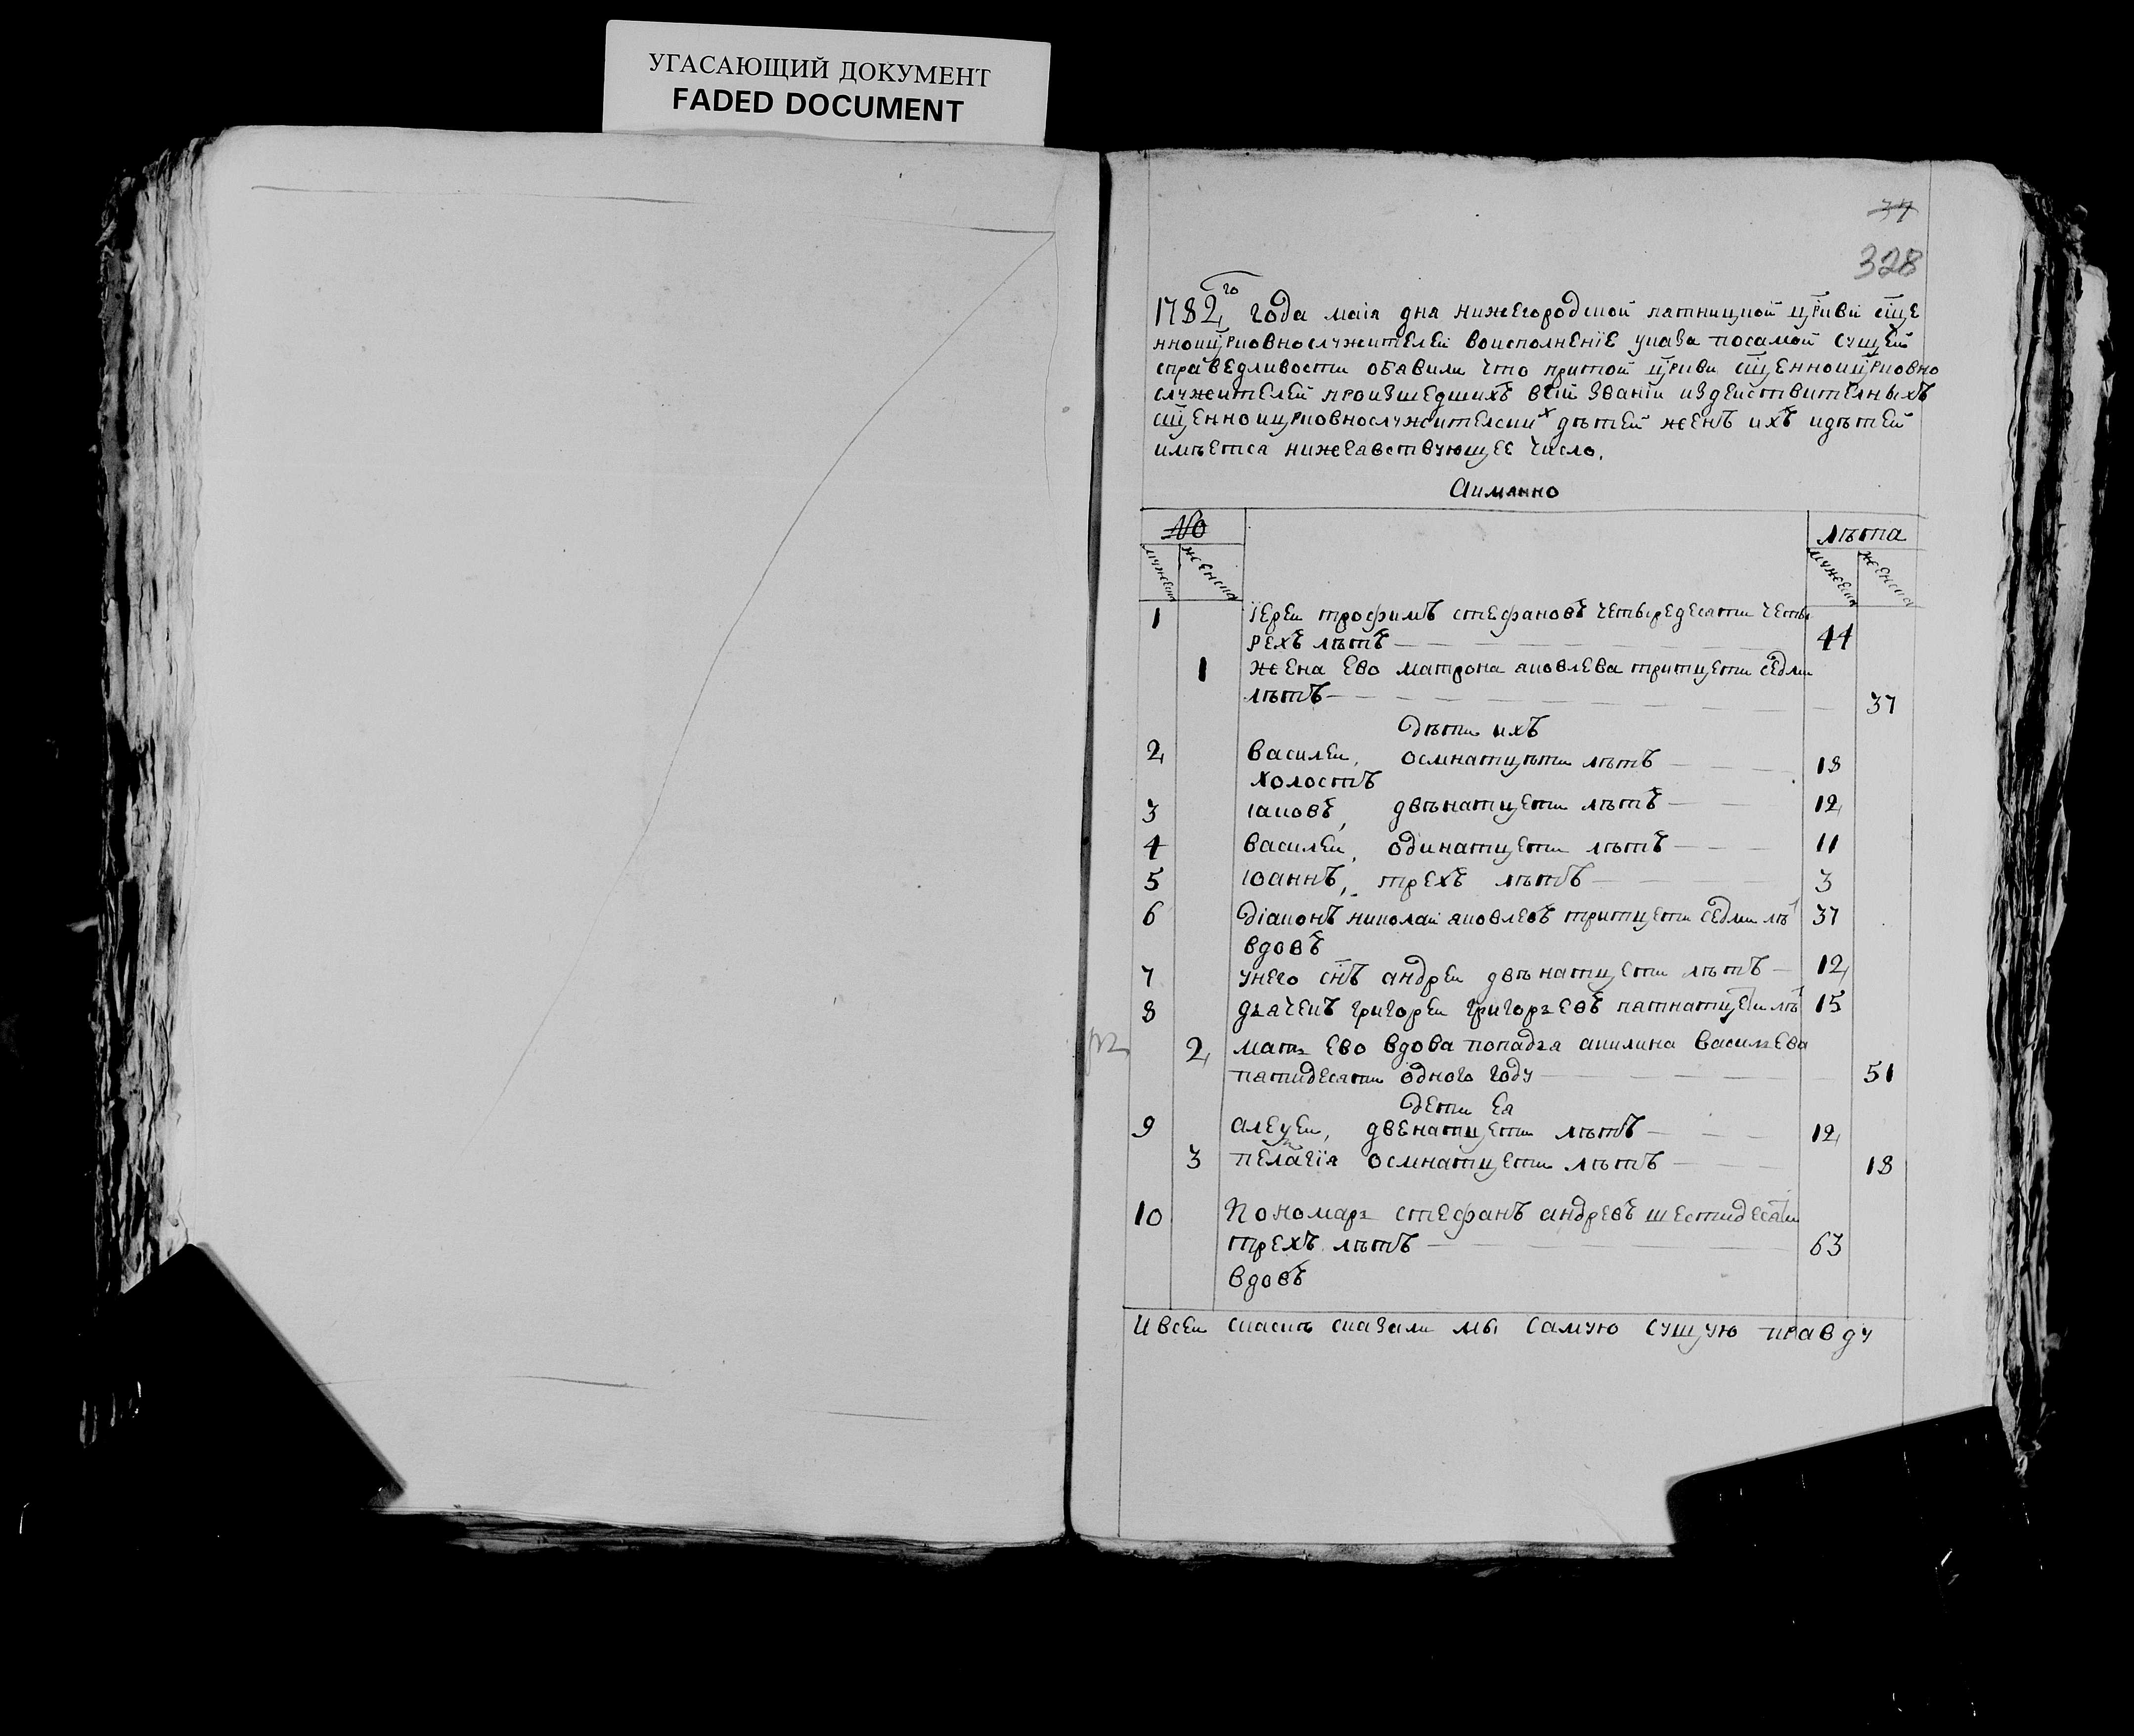 УГАСАЮЩИЙ ДОКУМЕНТ
FADED DOCUMENT
37
328
1782го года маіа дня нижегородской пятницкой цркви сще
нноицрковнослужителей воисполненїе указа посамой сущей
справедливости обявили что притой цркви сщенноицрковно
служителей произшедшихъ всїй званїи издеиствителныхъ
сщенноицрковнослужителских дѣтей женъ ихъ идѣтей
имѣется нижеявствующее число,
Аимянно
№ лѣта
мужеска женска мужеска женска
1 Їереи трофимъ стефановъ четыредесяти четы
рехъ лѣтъ 44
1 жена ево матрона яковлева тритцети седми
лѣтъ 37
Дѣти ихъ
2 василеи, осмнатцѣти лѣтъ 18
холостъ
3 іаковъ, двѣнатцети лѣтъ 12
4 василеи, одинатцети лѣтъ 11
5 іоаннъ, трехъ лѣтъ 3
6 Діаконъ николаи яковлевъ тритцети седми лѣ 37
вдовъ
7 унего снъ андреи двѣнатцети лѣтъ 12
8 дьячекъ григореи григорьевъ пятнатцети лѣ 15
2 мать ево вдова попадья акилина васильева
пятидесяти одного году 51
Дети ея
9 алеѯеи, двенатцети лѣтъ 12
3 пелагїя осмнатцети лѣтъ 18
10 Пономарь стефанъ андревъ шестидесяти
трехъ лѣтъ 63
вдовъ
Ивсеи скаскѣ сказали мы самую сущую правду